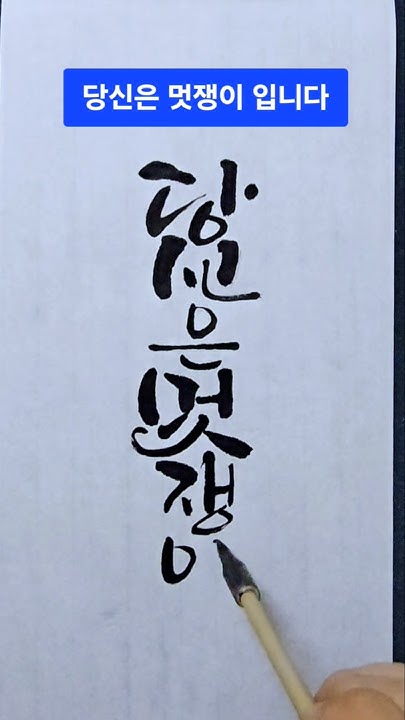 당신은 멋쟁이 입니다
당신은멋쟁ㅇ